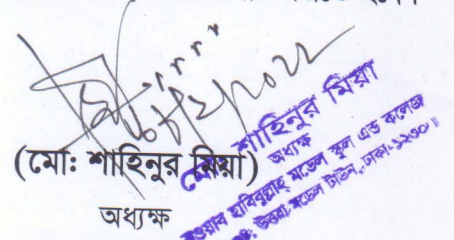 (মো: শাহিনুর মিয়া)
অধ্যক্ষ
মোঃ শাহিনুর মিয়া
অধ্যক্ষ
নওয়াব হাবিবুল্লাহ মডেল স্কুল এন্ড কলেজ
উত্তরা মডেল টাউন, ঢাকা-১২৩০।